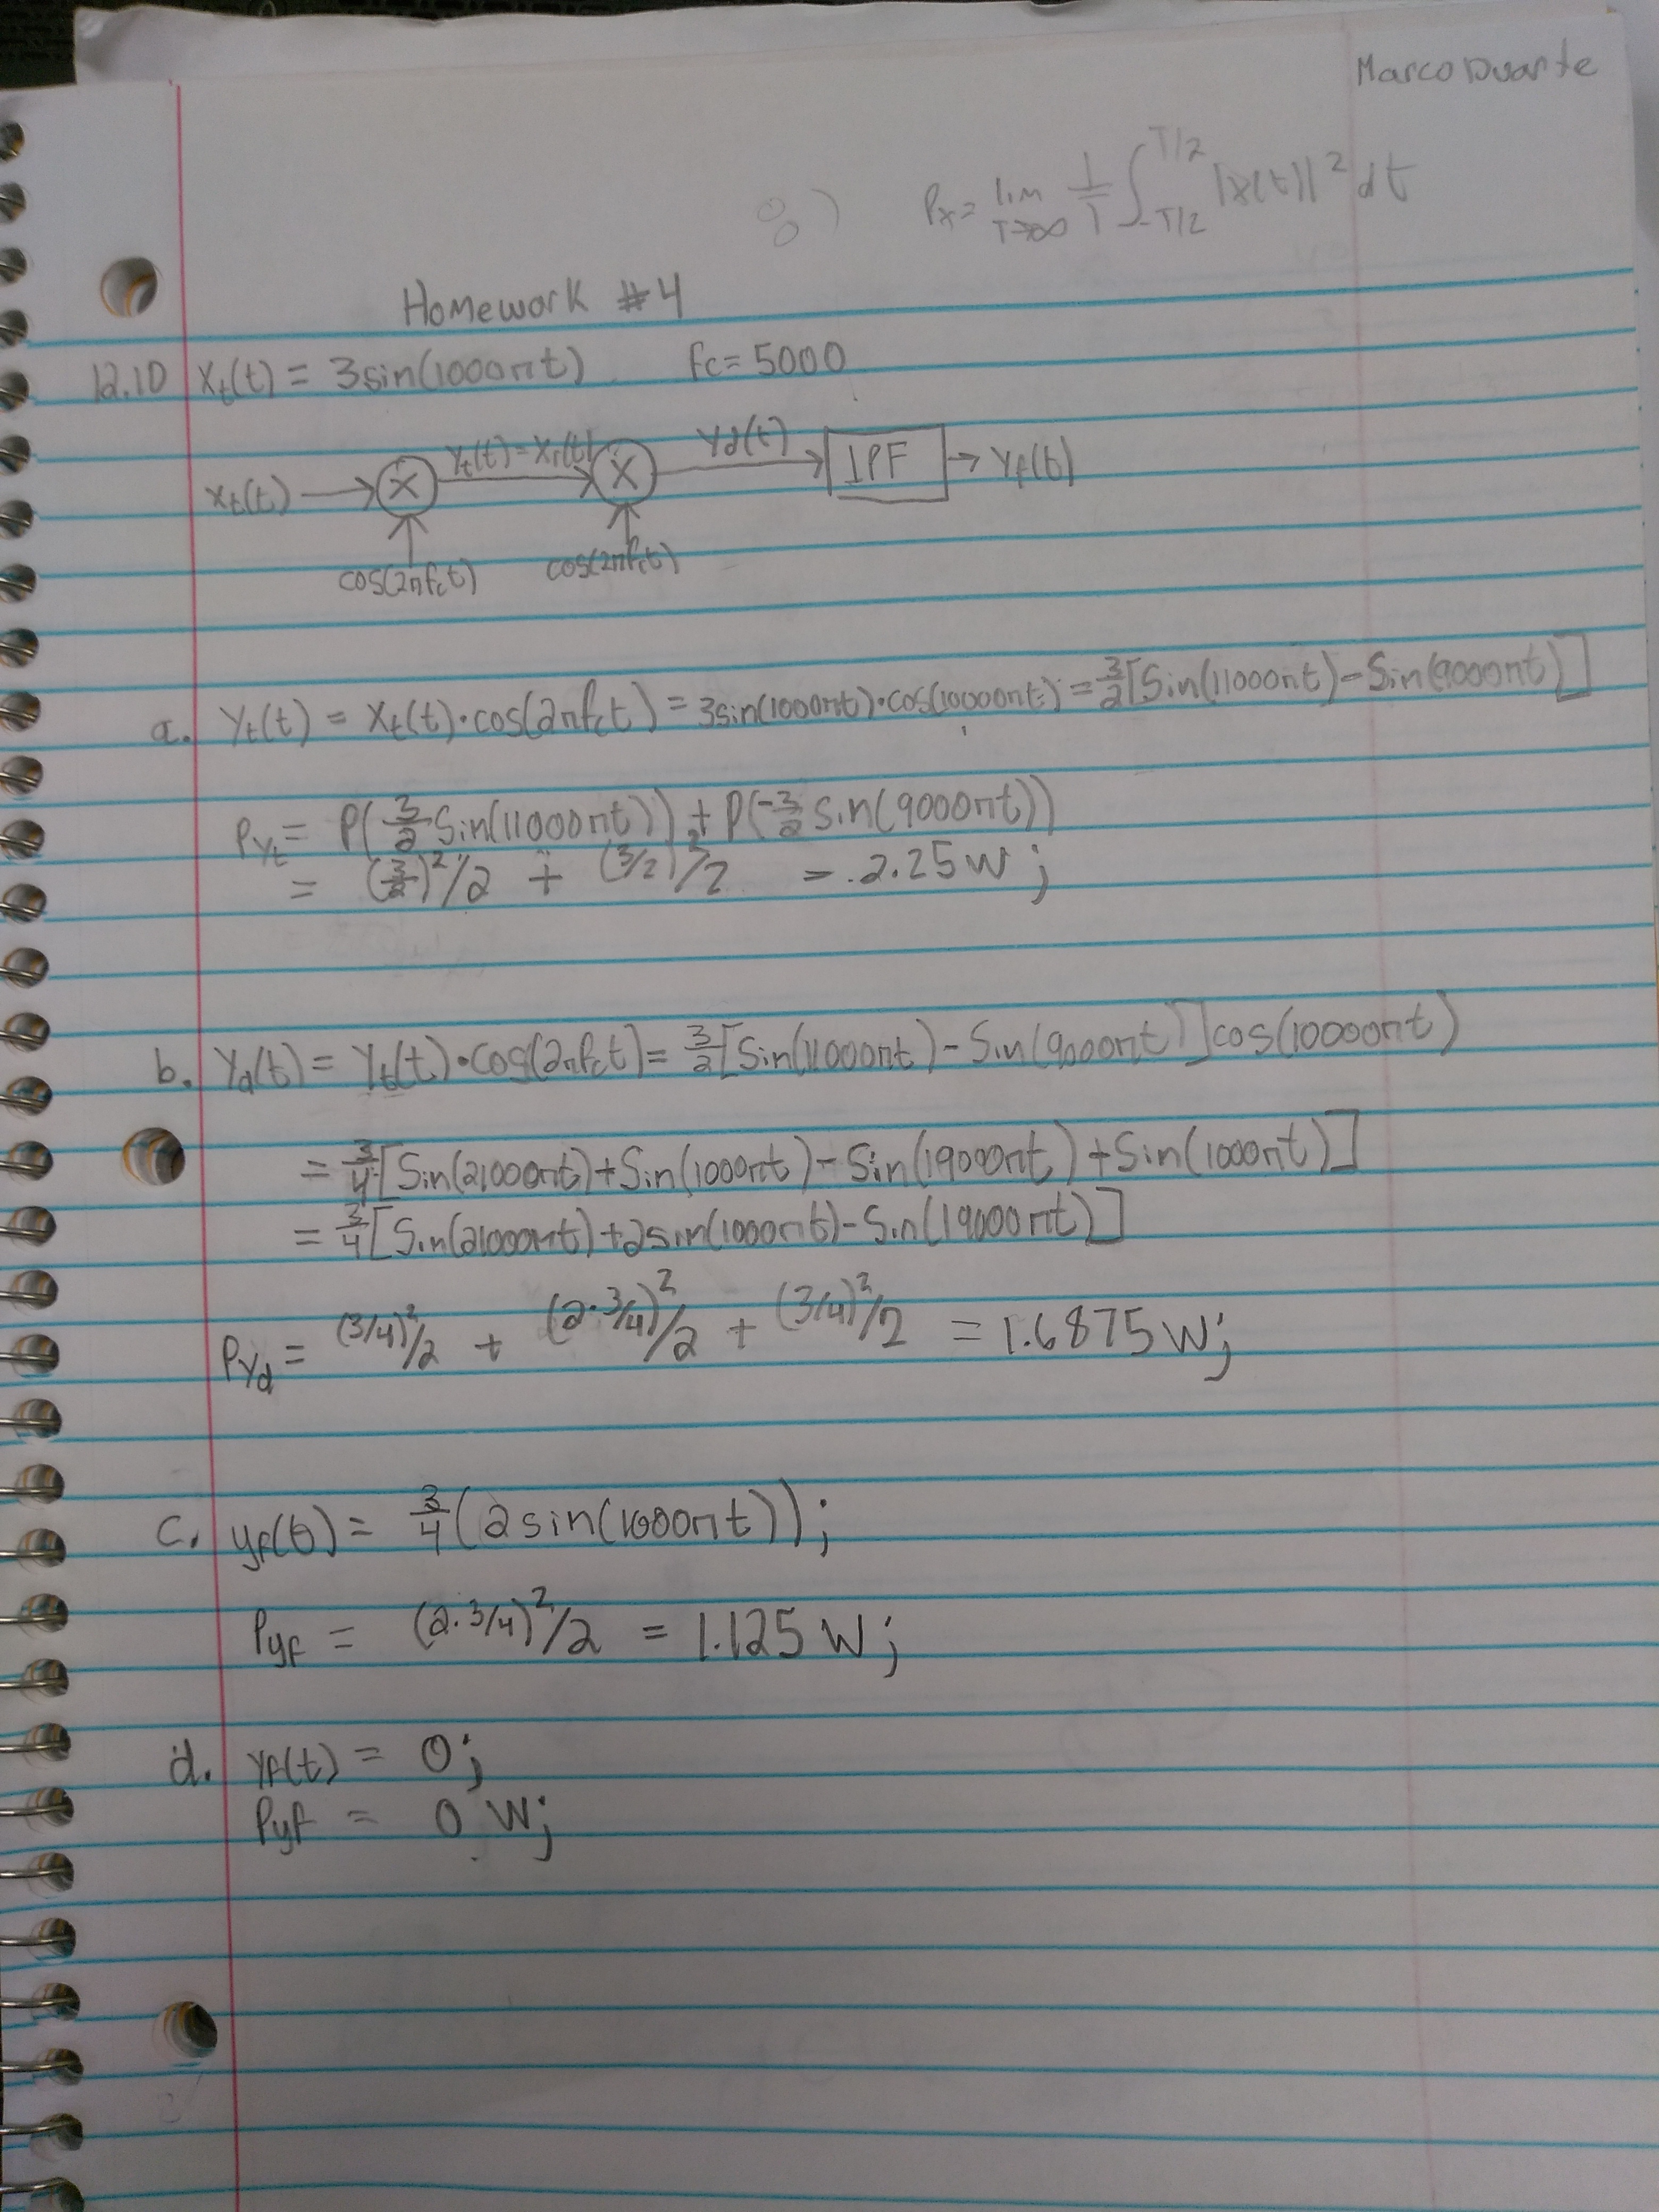 Marco Duarte
8) Px = lim T→∞ 1/T ∫_{-T/2}^{T/2} |x(t)|² dt
Homework #4
12.10 xt(t) = 3sin(1000πt) fc = 5000
xt(t) → X yt(t) = xr(t) X yd(t) → LPF → yf(t)
cos(2πfct) cos(2πfct)
a. yt(t) = xt(t)·cos(2πfct) = 3sin(1000πt)·cos(10000πt) = 3/2[Sin(11000πt) - Sin(9000πt)]
Pyt = P(3/2 Sin(11000πt)) + P(-3/2 Sin(9000πt))
= (3/2)²/2 + (3/2)²/2 = 2.25 W;
b. yd(t) = yt(t)·cos(2πfct) = 3/2[Sin(11000πt) - Sin(9000πt)]cos(10000πt)
= 3/4[Sin(21000πt) + Sin(1000πt) - Sin(19000πt) + Sin(1000πt)]
= 3/4[Sin(21000πt) + 2sin(1000πt) - Sin(19000πt)]
Pyd = (3/4)²/2 + (2·3/4)²/2 + (3/4)²/2 = 1.6875 W;
c. yf(t) = 3/4(2sin(1000πt));
Pyf = (2·3/4)²/2 = 1.125 W;
d. yf(t) = 0;
Pyf = 0 W;